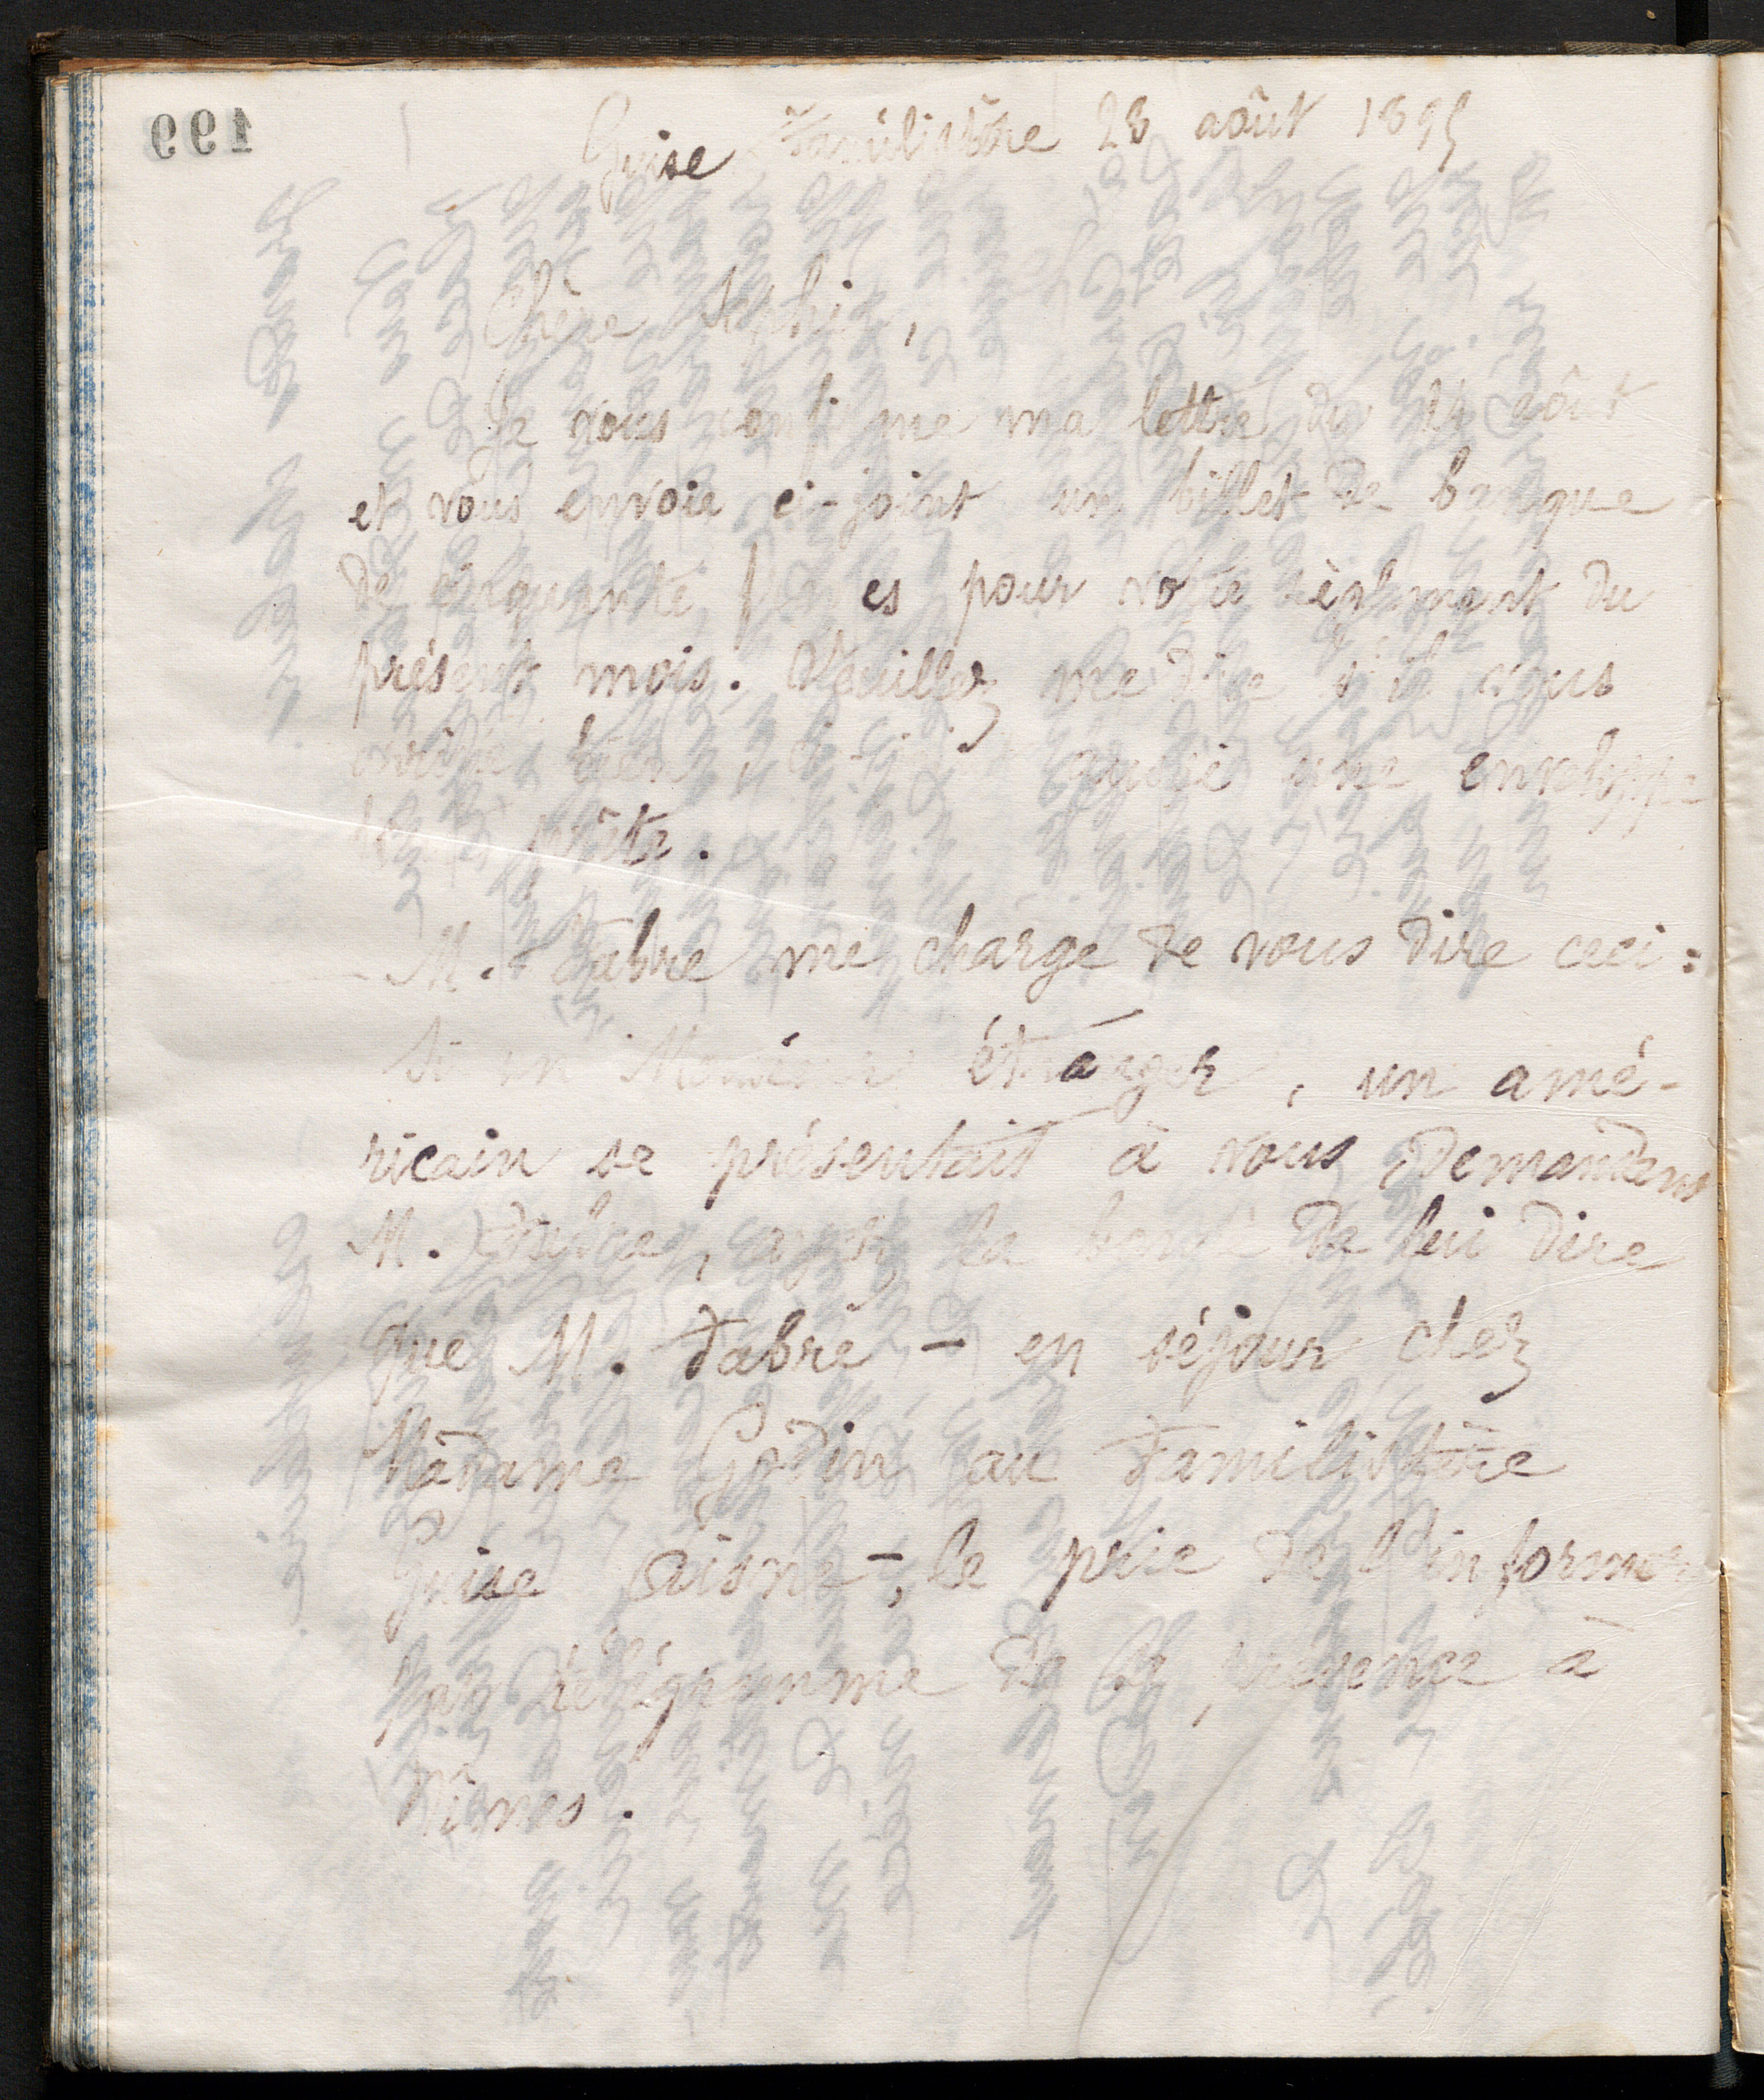 199
Guise Familistère 28 août 1895
Chère
Je vous confirme ma lettre du août
et vous envoie ci-joint un billet de banque
de cinquante pour votre règlement du
présent mois. Veuillez me dire s'il vous
arrive bien, aussi une enveloppe
prête.
M. Fabre me charge de vous dire ceci:
Si un Monsieur étranger, un amé-
ricain se présentait à vous demandant
M. Fabre, ayez la bonté de lui dire
que M. Fabre - en séjour chez
Madame Godin au Familistère
Guise Aisne -, le prie de l'informer
par télégramme de sa présence à
Nîmes.